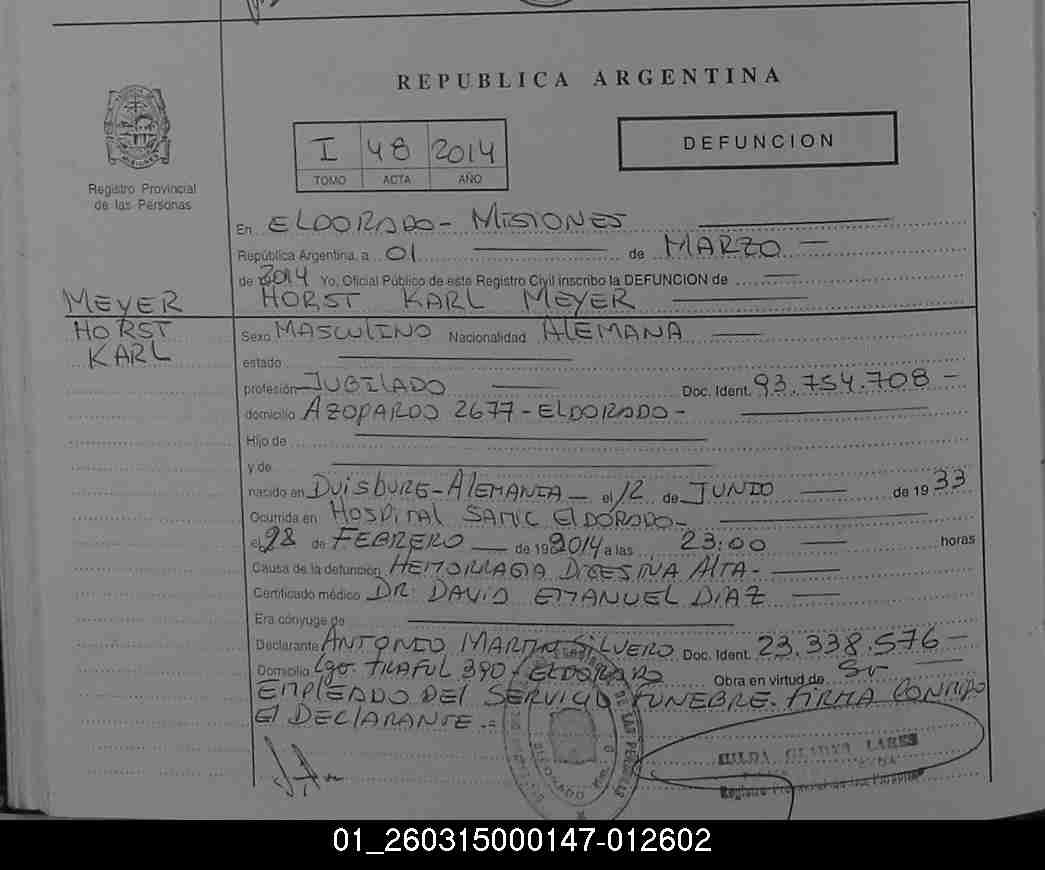 REPUBLICA ARGENTINA
Registro Provincial
de las Personas
I 48 2014
TOMO ACTA AÑO
DEFUNCION
En ELDORADO - MISIONES
República Argentina, a 01 de MARZO
de 2014 Yo, Oficial Público de este Registro Civil inscribo la DEFUNCION de
HORST KARL MEYER
MEYER
HORST
KARL
Sexo MASCULINO Nacionalidad ALEMANA
estado
profesión JUBILADO Doc. Ident. 93.754.708 -
domicilio AZOPARDO 2677 - ELDORADO -
Hijo de
y de
nacido en DUISBURG - ALEMANIA - el 12 de JUNIO de 19 33
Ocurrida en HOSPITAL SAMIC ELDORADO -
el 28 de FEBRERO de 19 2014 a las 23:00 horas
Causa de la defunción HEMORRAGIA DIGESTIVA ALTA -
Certificado médico DR. DAVID EMANUEL DIAZ
Era cónyuge de
Declarante ANTONIO MARTIN SILVERO Doc. Ident. 23.338.576 -
Domicilio Lgo. TRAFUL 390 - ELDORADO Obra en virtud de Sr
EMPLEADO DEL SERVICIO FUNEBRE. FIRMA CONMIGO
EL DECLARANTE . =
DE LAS PERSONAS
ELDORADO
HILDA GLADYS LARES
Registro Provincial de las Personas
01_260315000147-012602